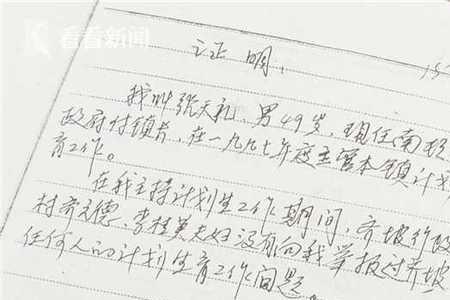 看看新闻
证明、
我叫张天礼、男49岁、现任南顿
政府付镇长、在一九九七年度主管本镇计划
育工作。
在我主持计划生工作期间，齐坡行政
村齐元德、李桂英夫妇没有向我举报过齐坡
任何人的计划生育工作问题。